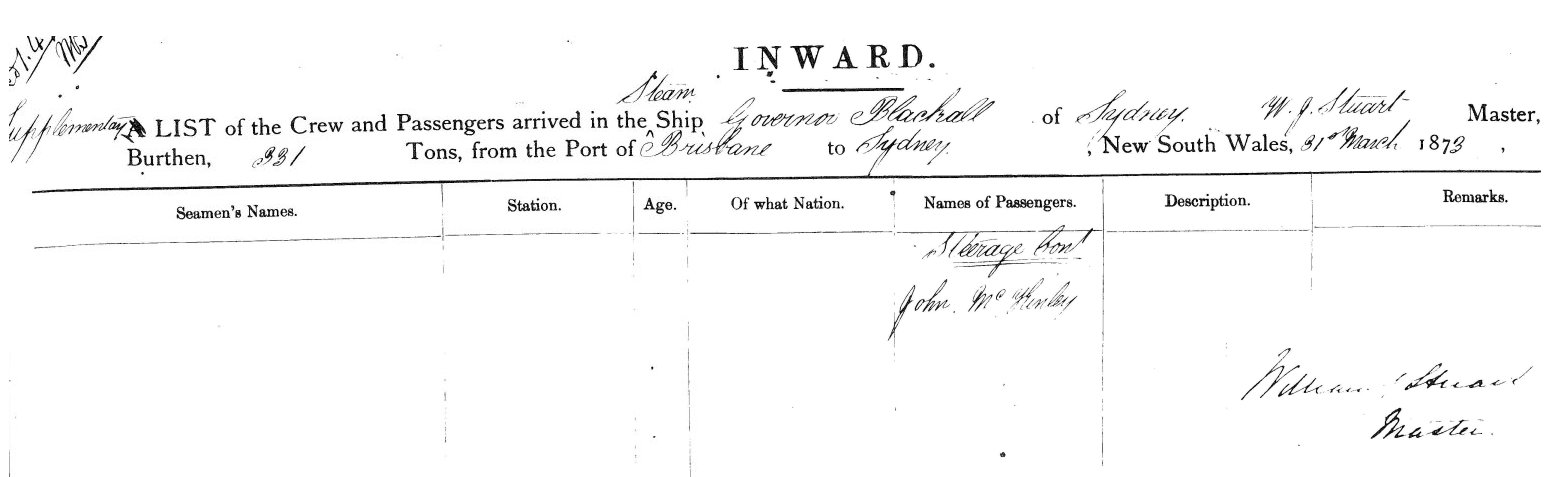 INWARD.
Steam
Supplementary A LIST of the Crew and Passengers arrived in the Ship Governor Blackall of Sydney. W. J. Stuart Master,
Burthen, 331 Tons, from the Port of Brisbane to Sydney. , New South Wales, 31st March 1873 ,
Seamen's Names. Station. Age. Of what Nation. Names of Passengers. Description. Remarks.
Steerage Cont
John Mc Kinley
William Stuart
Master.